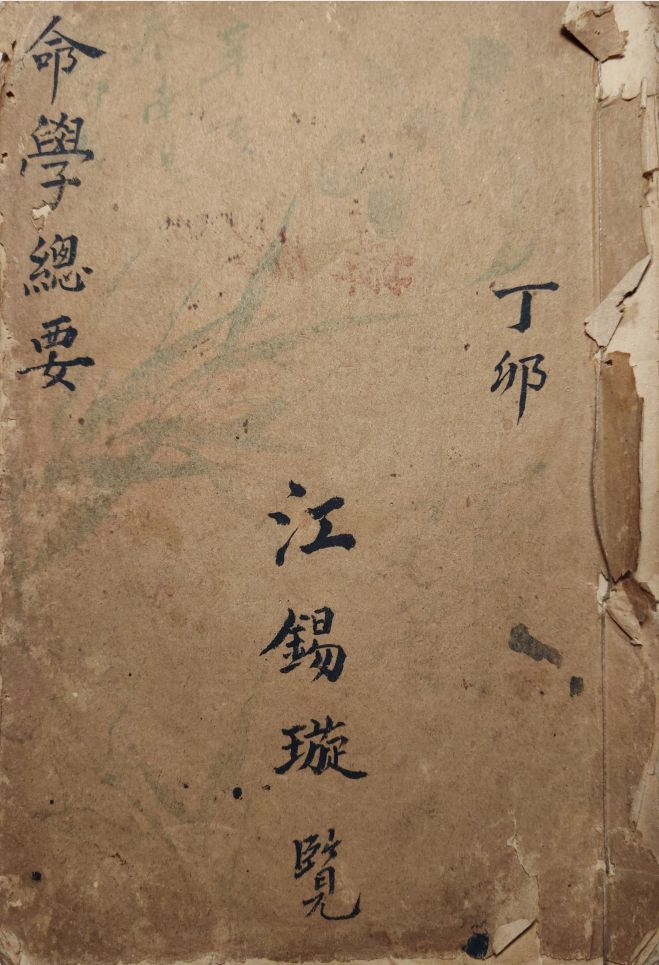 丁卯
江錫璇覽
命學總要